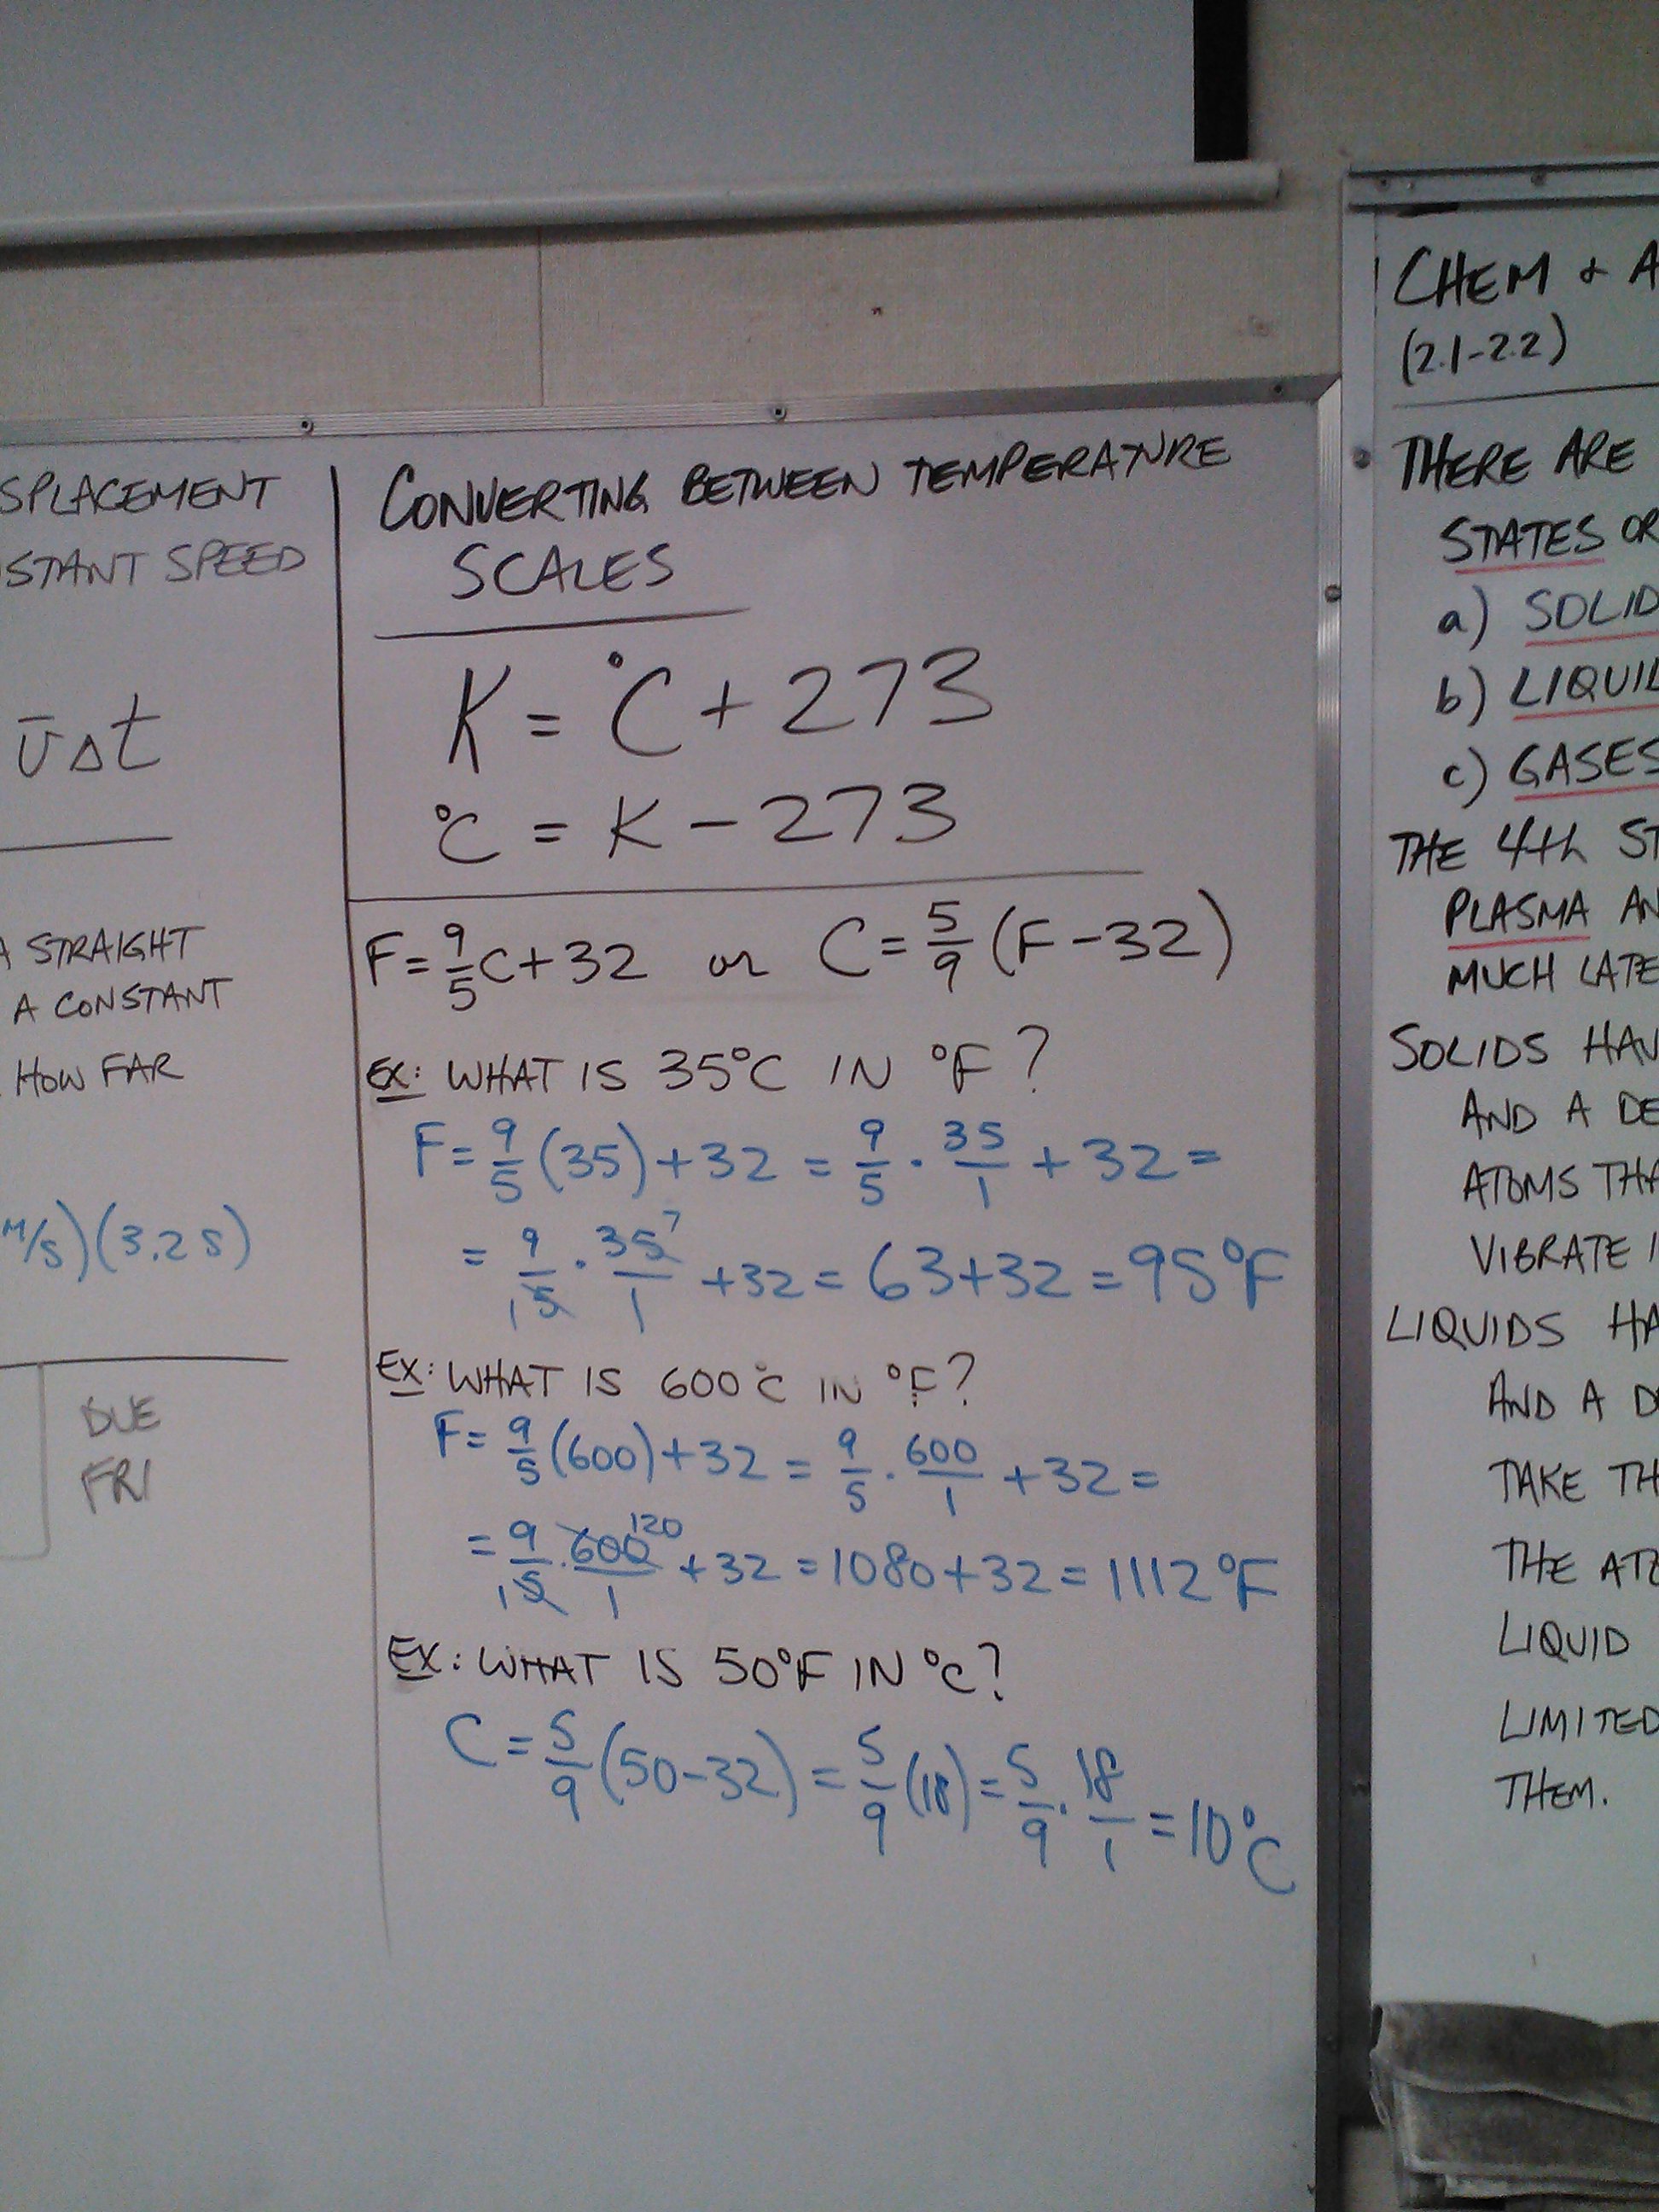 SPLACEMENT
STANT SPEED
v̄Δt
A STRAIGHT
A CONSTANT
HOW FAR
M/S)(3.2 S)
DUE
FRI
CONVERTING BETWEEN TEMPERATURE
SCALES
K = °C + 273
°C = K - 273
F = 9/5 C + 32 or C = 5/9 (F - 32)
EX: WHAT IS 35°C IN °F?
F = 9/5 (35) + 32 = 9/5 · 35/1 + 32 =
= 9/5 1 · 35 7/1 + 32 = 63 + 32 = 95°F
EX: WHAT IS 600°C IN °F?
F = 9/5 (600) + 32 = 9/5 · 600/1 + 32 =
= 9/5 1 · 600 120/1 + 32 = 1080 + 32 = 1112°F
EX: WHAT IS 50°F IN °C?
C = 5/9 (50 - 32) = 5/9 (18) = 5/9 · 18/1 = 10°C
CHEM + A
(2.1-2.2)
THERE ARE
STATES OR
a) SOLID
b) LIQUID
c) GASES
THE 4th ST
PLASMA AN
MUCH LATE
SOLIDS HAV
AND A DE
ATOMS THA
VIBRATE I
LIQUIDS HA
AND A D
TAKE TH
THE ATO
LIQUID
LIMITED
THEM.